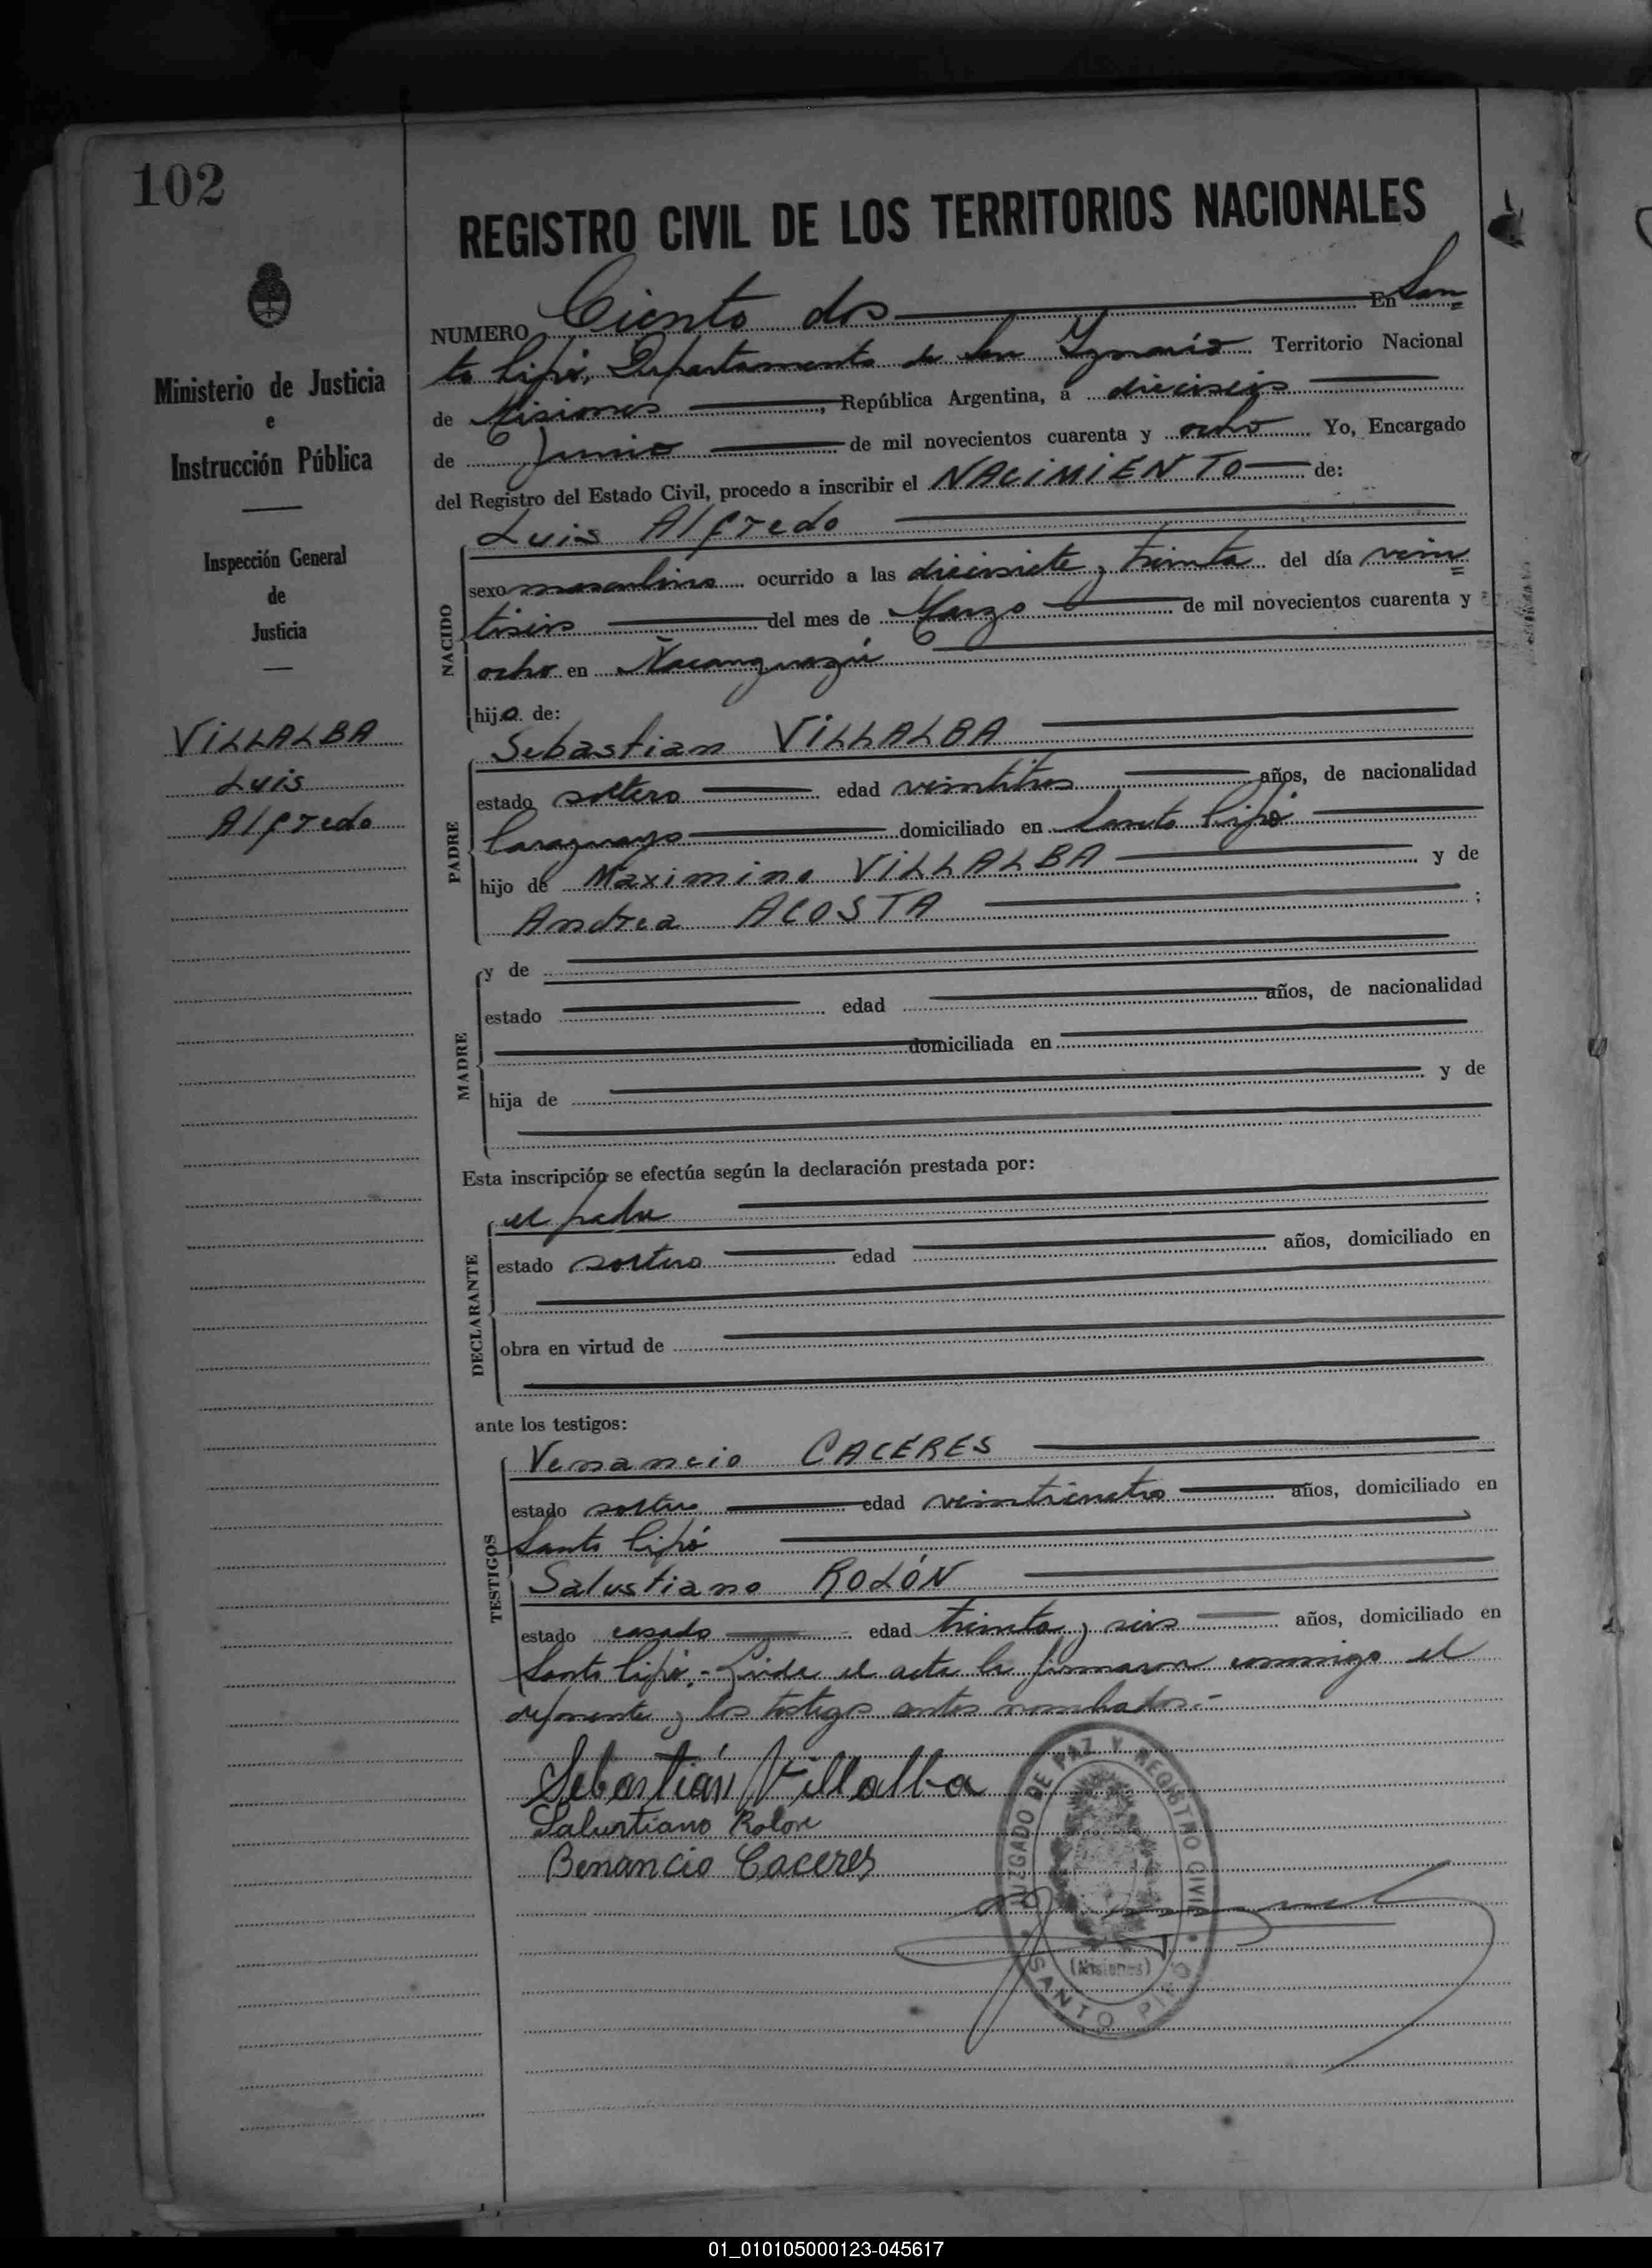 102
REGISTRO CIVIL DE LOS TERRITORIOS NACIONALES
Ministerio de Justicia
e
Instrucción Pública
Inspección General
de
Justicia
VILLALBA
Luis
Alfredo
NUMERO Ciento dos En San=
to Pipó, Departamento de San Ygnacio Territorio Nacional
de Misiones, República Argentina, a dieciseis
de Junio de mil novecientos cuarenta y ocho Yo, Encargado
del Registro del Estado Civil, procedo a inscribir el NACIMIENTO de:
NACIDO
Luis Alfredo
sexo masculino ocurrido a las diecisiete y treinta del día vein=
tiseis del mes de Marzo de mil novecientos cuarenta y
ocho en Ñacanguazú
hijo de:
PADRE
Sebastian VILLALBA
estado soltero edad veintitres años, de nacionalidad
Paraguayo domiciliado en Santo Pipó
hijo de Maximino VILLALBA y de
Andrea ACOSTA ;
MADRE
y de
estado edad años, de nacionalidad
domiciliada en
hija de y de
Esta inscripción se efectúa según la declaración prestada por:
DECLARANTE
el padre
estado soltero edad años, domiciliado en
obra en virtud de
ante los testigos:
TESTIGOS
Venancio CACERES
estado soltero edad veinticuatro años, domiciliado en
Santo Pipó
Salustiano ROLÓN
estado casado edad treinta y seis años, domiciliado en
Santo Pipó.- Leida el acta la firmaron conmigo el
deponente y los testigos antes nombrados.-
Sebastián Villalba
Salustiano Rolon
Benancio Caceres
JUZGADO DE PAZ Y REGISTRO CIVIL
(Misiones)
SANTO PIPO
01_010105000123-045617